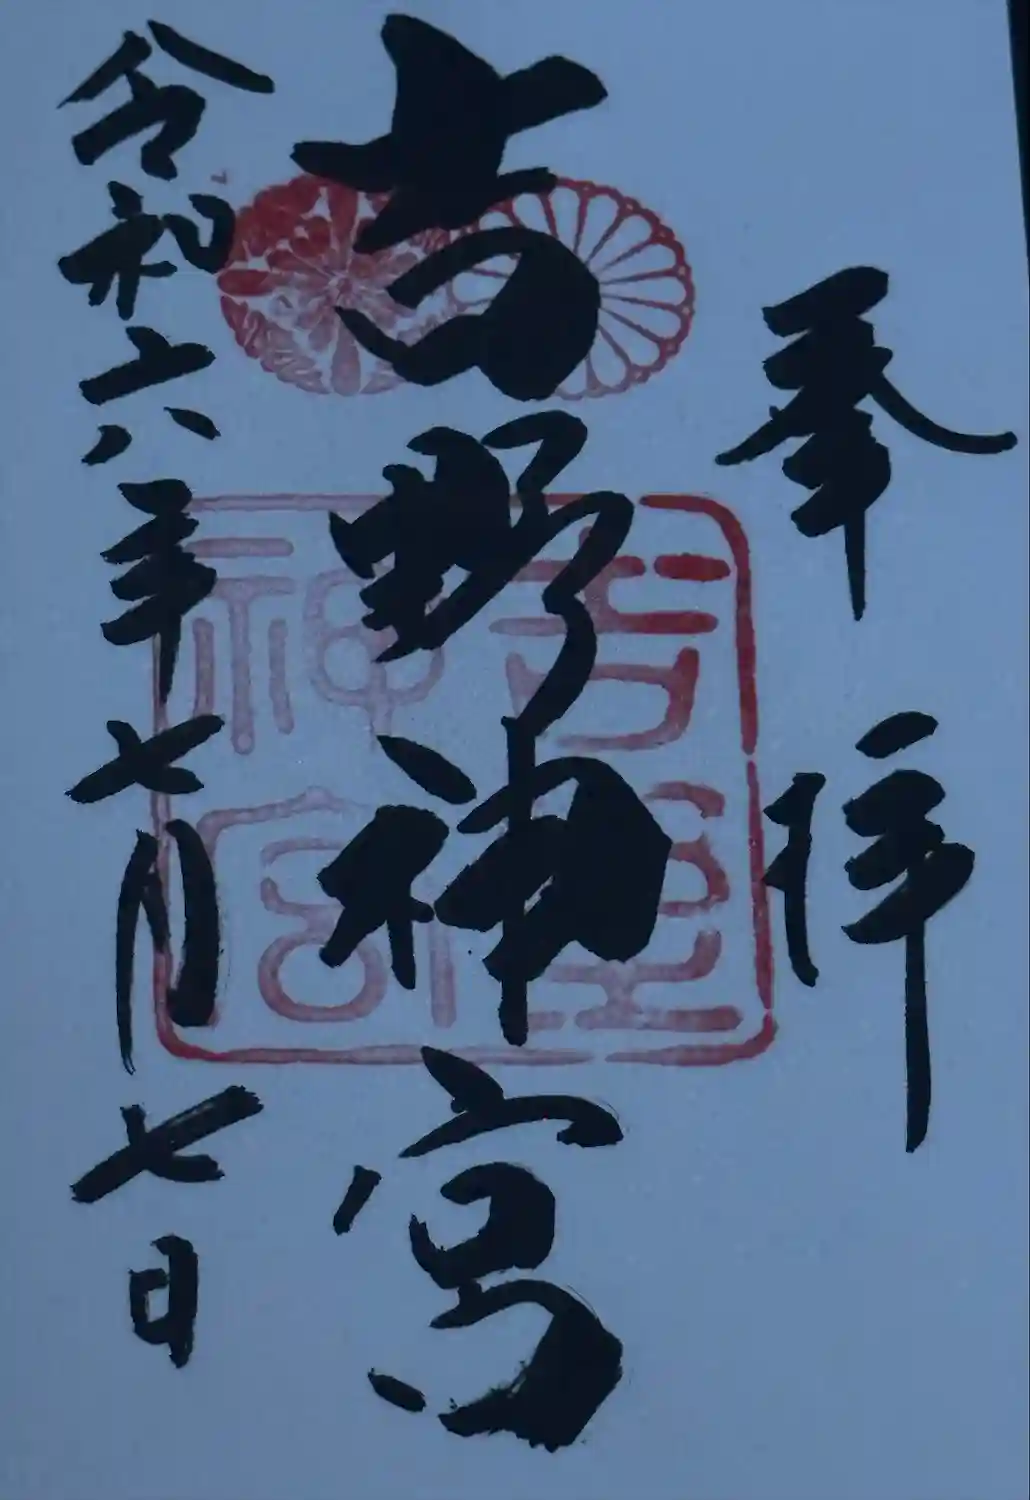 奉拝
吉野神宮
令和六年七月七日
吉野
神宮